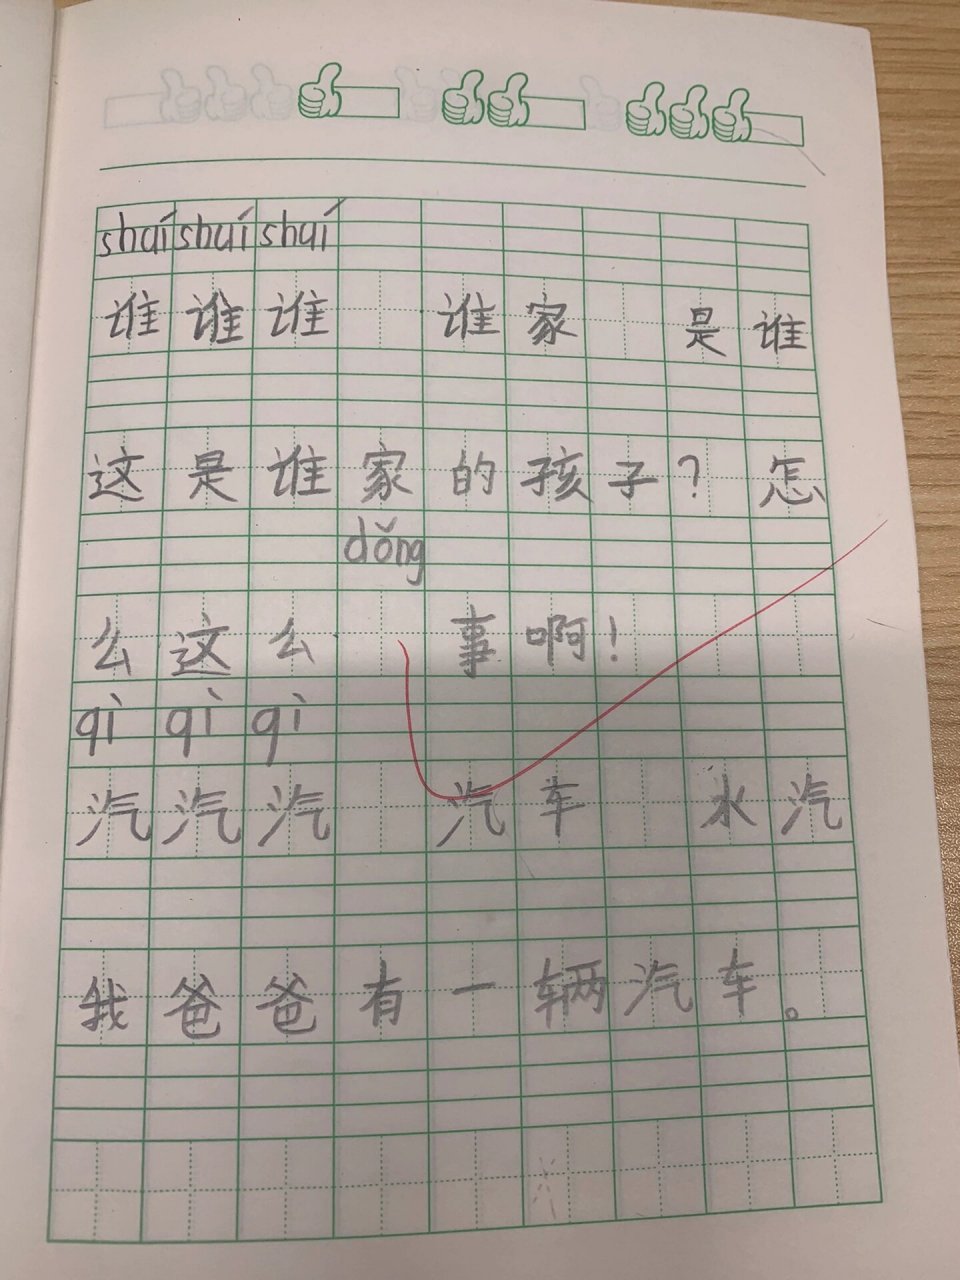 shuí shuí shuí
谁谁谁 谁家 是谁
这是谁家的孩子？怎
dǒng
么这么 事啊！
qì qì qì
汽汽汽 汽车 水汽
我爸爸有一辆汽车。